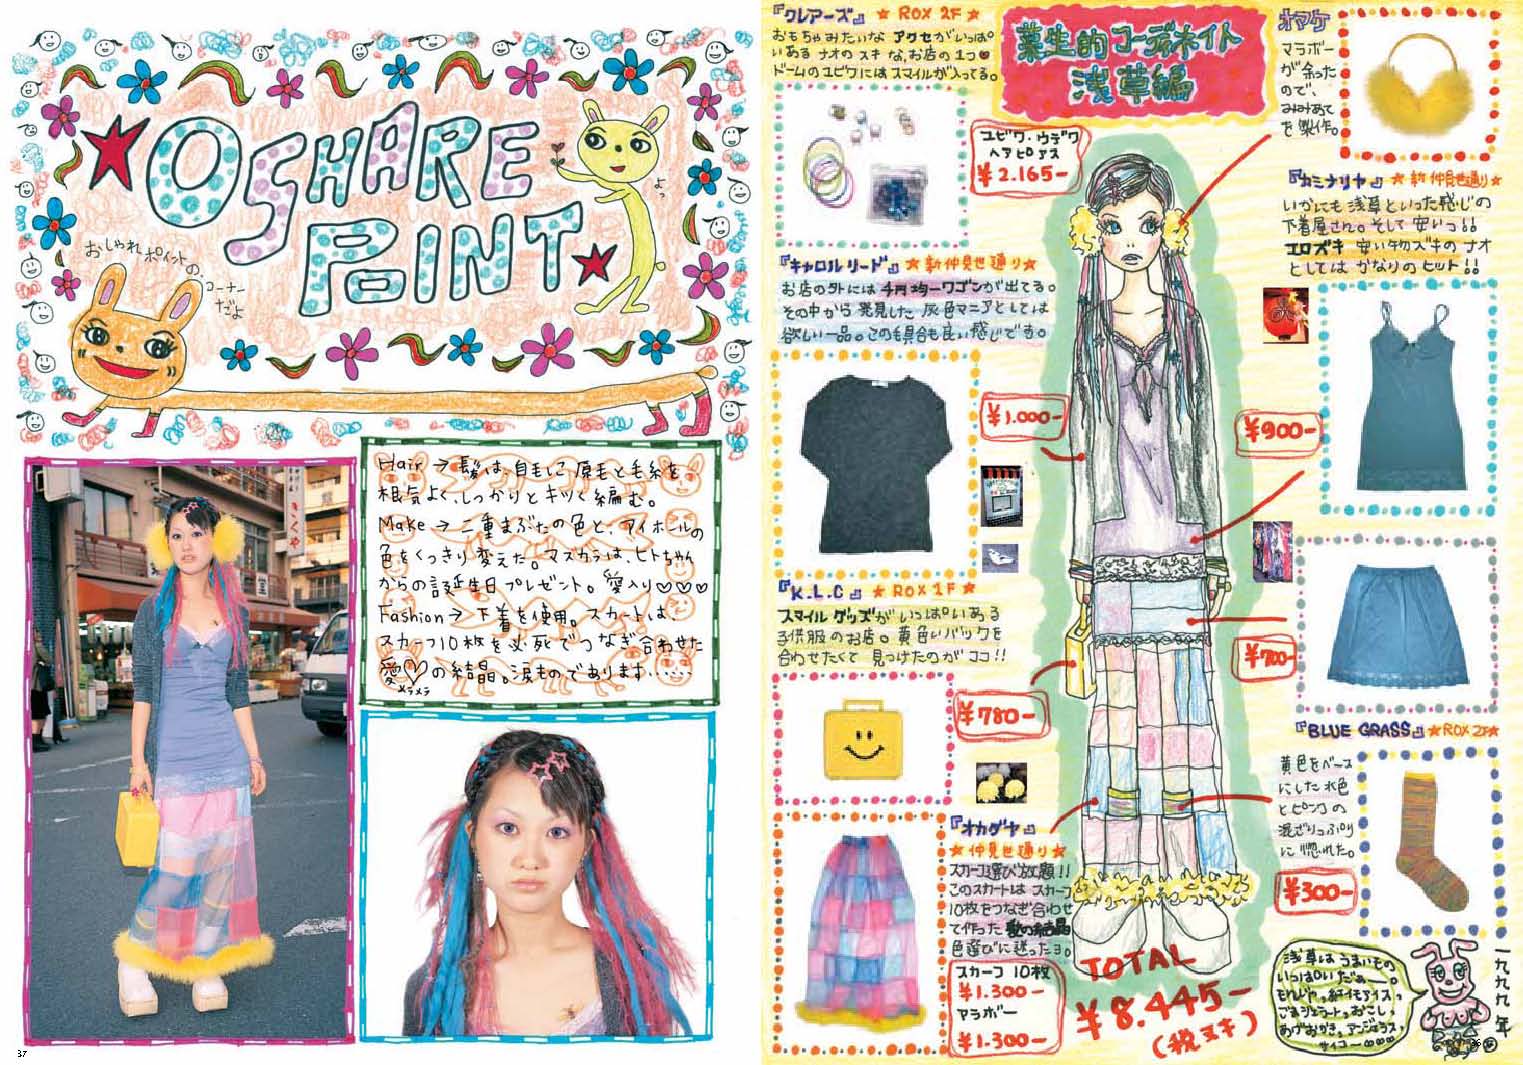 OSHARE
POINT
よっ
おしゃれポイントの、
コーナー
だよ
Hair → 髪は、自毛しこ原毛と毛糸を
根気よく、しっかりとキツく編む。
Make → 二重まぶたの色と、アイホールの
色をくっきり変えた。マスカラは、ヒトちゃん
からの誕生日プレゼント。愛入り♡♡♡
Fashion → 下着を使用。スカートは、
スカーフ10枚を必死でつなぎ合わせた
愛♡の結晶。涙ものであります……
メラメラ
37
『クレアーズ』 ★ ROX 2F ★
おもちゃみたいな アクセがいっぱい
いある ナオのスキな、お店の1つ♥
ドームのユビワにはスマイルが入ってる。
葉生的コーディネイト
浅草編
オマケ
マラボー
が余った
ので、
みみあて
を製作。
ユビワ・ウデワ
ヘアピアス
¥2.165-
『カミナリヤ』 ★ 新仲見世通り★
いかにも浅草といった感じの
下着屋さん。そして安いっ!!
エロズキ 安い物ズキのナオ
としては かなりのヒット!!
『キャロルリード』 ★新仲見世通り★
お店の外には 4月均一ワゴンが出てる。
その中から発見した灰色マニアとしては
欲しい一品。この具合も良い感じです。
¥1.000-
¥900-
『K.L.C』 ★ ROX 1F ★
スマイルグッズがいっぱいある
子供服のお店。黄色いバックを
合わせたくて 見つけたのがココ!!
¥700-
¥780-
『BLUE GRASS』 ★ROX 2F★
黄色をベース
にした水色
とピンクの
混ざりっぷり
に惚れた。
¥300-
『オカダヤ』
★仲見世通り★
スカーフ選び放題!!
このスカートは スカーフ
10枚をつなぎ合わせ
て作った 愛の結晶
色選びに迷ったヨ。
スカーフ 10枚
¥1.300-
マラボー
¥1.300-
TOTAL
¥8.445-
(税ヌキ)
浅草はうまいもの
いっぱいだぁー。
もんじゃっ紅イモアイスっ
ごまジェラートっおこし、
あげおかき、アンジェラス、
サイコー
一九九九年
36